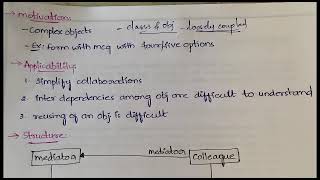 → Motivation:
- Complex objects - classes & obj - loosely coupled
- Ex: Form with mcq with four/five options
→ Applicability:
1. Simplify collaborations
2. Inter dependencies among obj are difficult to understand
3. reusing of an obj is difficult
→ Structure:
mediator mediator colleague